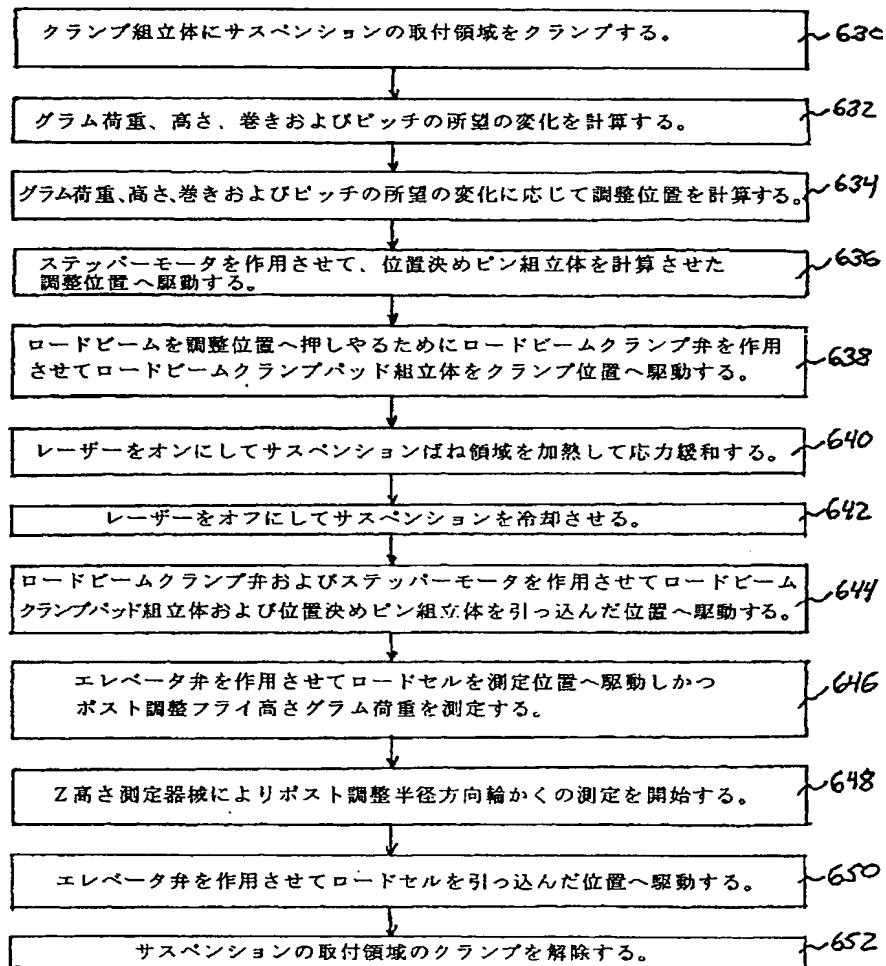 クランプ組立体にサスペンションの取付領域をクランプする。
630
グラム荷重、高さ、巻きおよびピッチの所望の変化を計算する。
632
グラム荷重、高さ、巻きおよびピッチの所望の変化に応じて調整位置を計算する。
634
ステッパーモータを作用させて、位置決めピン組立体を計算させた
調整位置へ駆動する。
636
ロードビームを調整位置へ押しやるためにロードビームクランプ弁を作用
させてロードビームクランプパッド組立体をクランプ位置へ駆動する。
638
レーザーをオンにしてサスペンションばね領域を加熱して応力緩和する。
640
レーザーをオフにしてサスペンションを冷却させる。
642
ロードビームクランプ弁およびステッパーモータを作用させてロードビーム
クランプパッド組立体および位置決めピン組立体を引っ込んだ位置へ駆動する。
644
エレベータ弁を作用させてロードセルを測定位置へ駆動しかつ
ポスト調整フライ高さグラム荷重を測定する。
646
Z高さ測定器械によりポスト調整半径方向輪かくの測定を開始する。
648
エレベータ弁を作用させてロードセルを引っ込んだ位置へ駆動する。
650
サスペンションの取付領域のクランプを解除する。
652